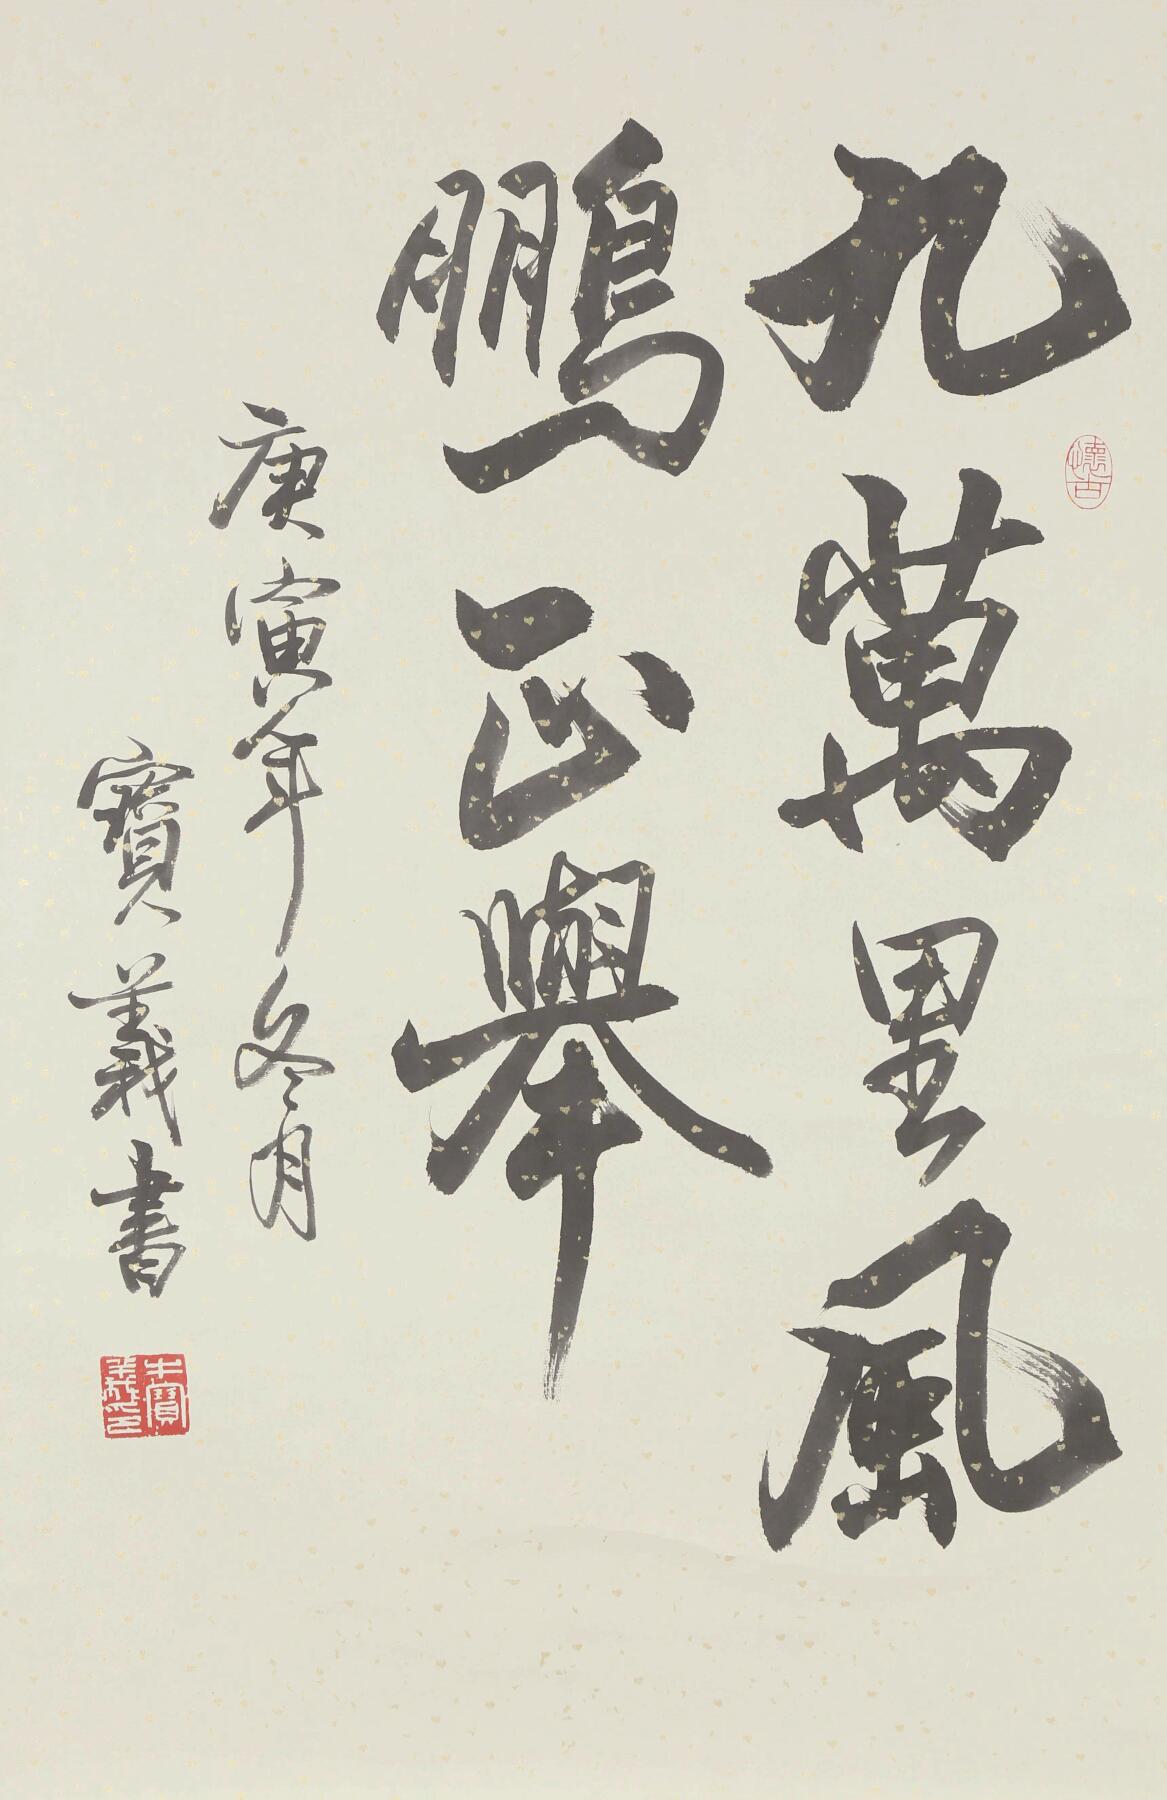 九萬里風
鵬正舉
庚寅年冬月
寶義書
懷古